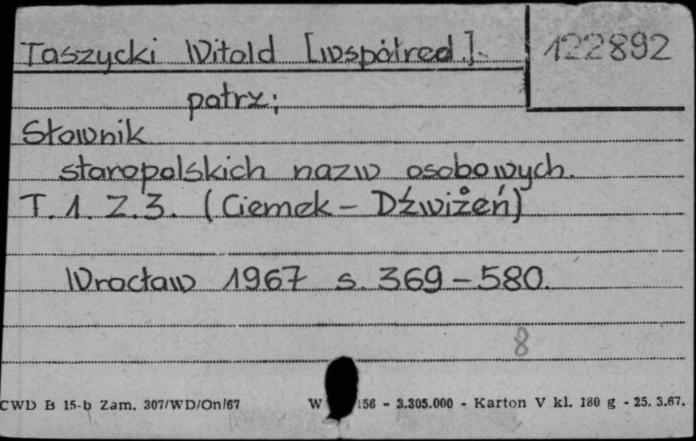 Taszycki Witold [współred.]
122892
patrz:
Słownik
staropolskich nazw osobowych.
T. 1. Z. 3. (Ciemek - Dźwiżeń)
Wrocław 1967 s. 369-580.
8
CWD B 15-b Zam. 307/WD/On/67 W 156 - 3.305.000 - Karton V kl. 180 g - 25. 3.67.